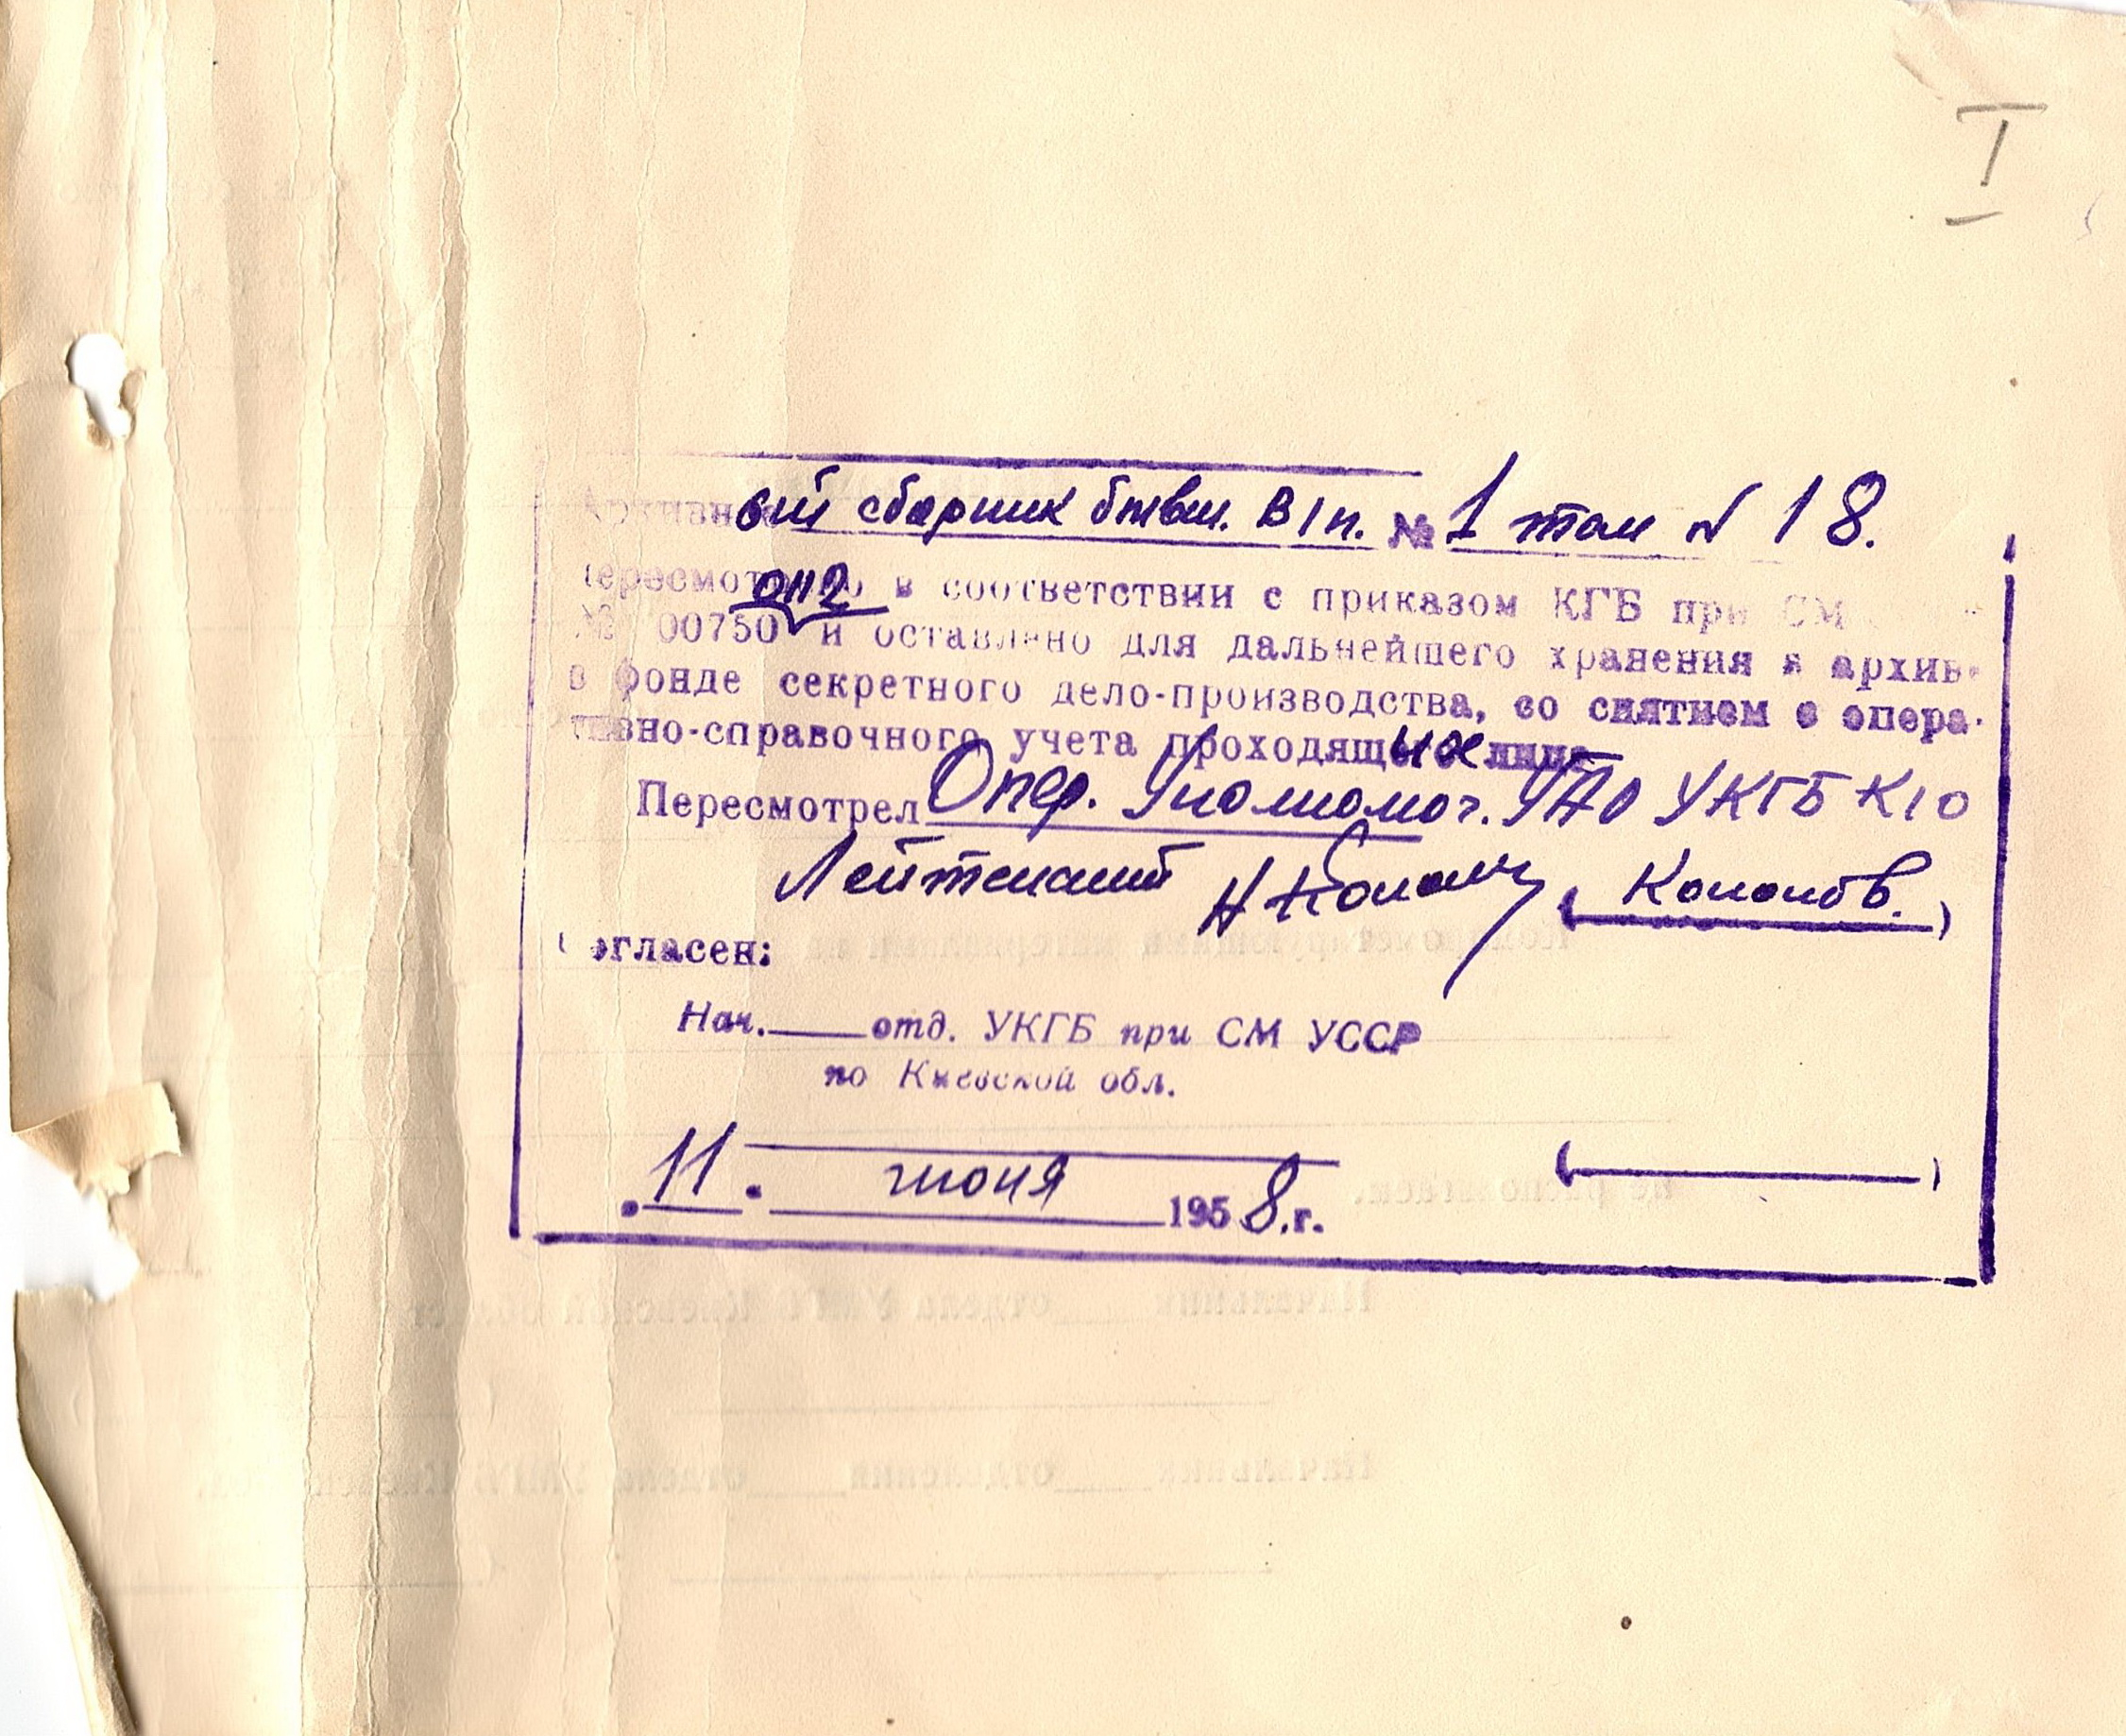 I
Архивный сборник В 1 п. № 1 том № 18.
пересмотрено в соответствии с приказом КГБ при СМ
0112
№ 00750 и оставлено для дальнейшего хранения в архив-
в фонде секретного дело-производства, со снятием с опера-
тивно-справочного учета проходящих лица
Пересмотрел Опер. Уполномоч. УАО УКГБ КО
Лейтенант (Кононов.)
Согласен:
Нач. ____ отд. УКГБ при СМ УССР
по Киевской обл.
"11" июня 1958 г.